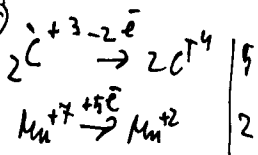 2C⁺³ -2ē → 2C⁺⁴ | 5
Mn⁺⁷ +5ē → Mn⁺² | 2